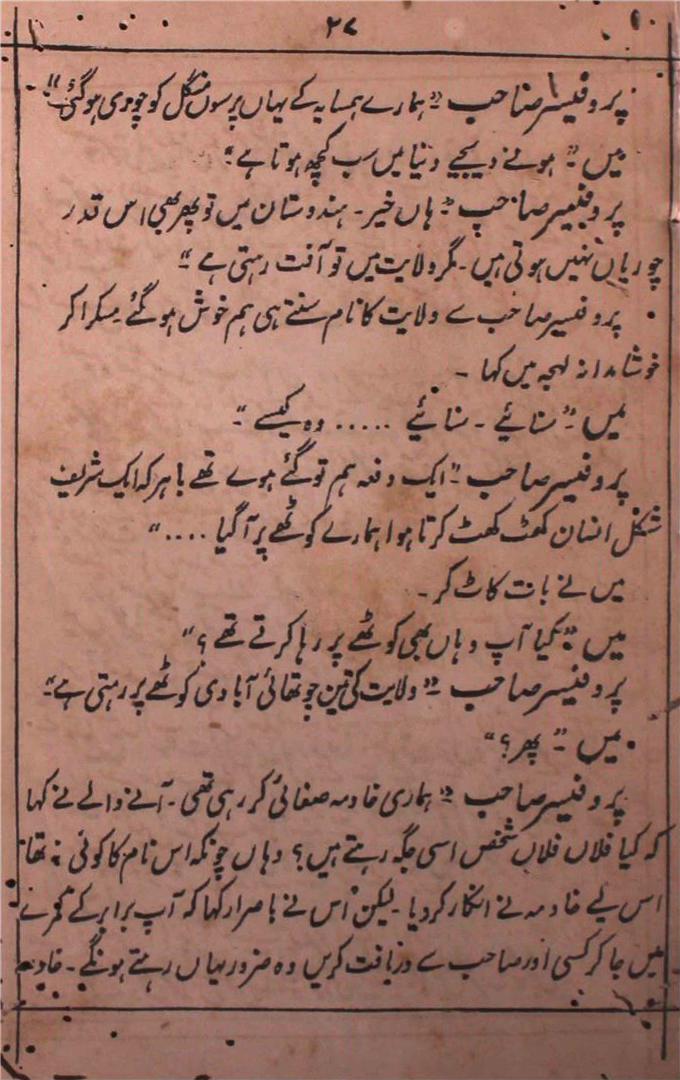 ۲۷
پروفیسر صاحب "ہمارے ہمسایہ کے یہاں پرسوں منگل کو چوری ہو گئی"
میں "ہونے دیجیے دنیا میں سب کچھ ہوتا ہے"
پروفیسر صاحب "ہاں خیر۔ ہندوستان میں تو پھر بھی اس قدر
چوریاں نہیں ہوتی ہیں۔ مگر ولایت میں تو آفت رہتی ہے"
پروفیسر صاحب سے ولایت کا نام سنتے ہی ہم خوش ہو گئے۔ مسکرا کر
خوشامدانہ لہجہ میں کہا۔
میں "سنائیے۔ سنائیے ..... وہ کیسے"
پروفیسر صاحب "ایک دفعہ ہم تو گئے ہوے تھے باہر کہ ایک شریف
شکل انسان کھٹ کھٹ کرتا ہوا ہمارے کوٹھے پر آگیا ...."
میں نے بات کاٹ کر۔
میں "کیا آپ وہاں بھی کوٹھے پر رہا کرتے تھے ؟"
پروفیسر صاحب "ولایت کی تین چوتھائی آبادی کوٹھے پر رہتی ہے"
میں "پھر؟"
پروفیسر صاحب "ہماری خادمہ صفائی کر رہی تھی۔ آنے والے نے کہا
کہ کیا فلاں فلاں شخص اسی جگہ رہتے ہیں؟ وہاں چونکہ اس نام کا کوئی نہ تھا
اس لیے خادمہ نے انکار کر دیا۔ لیکن اس نے باصرار کہا کہ آپ برابر کے کمرے
میں جا کر کسی اور صاحب سے دریافت کریں وہ ضرور یہاں رہتے ہونگے۔ خادمہ